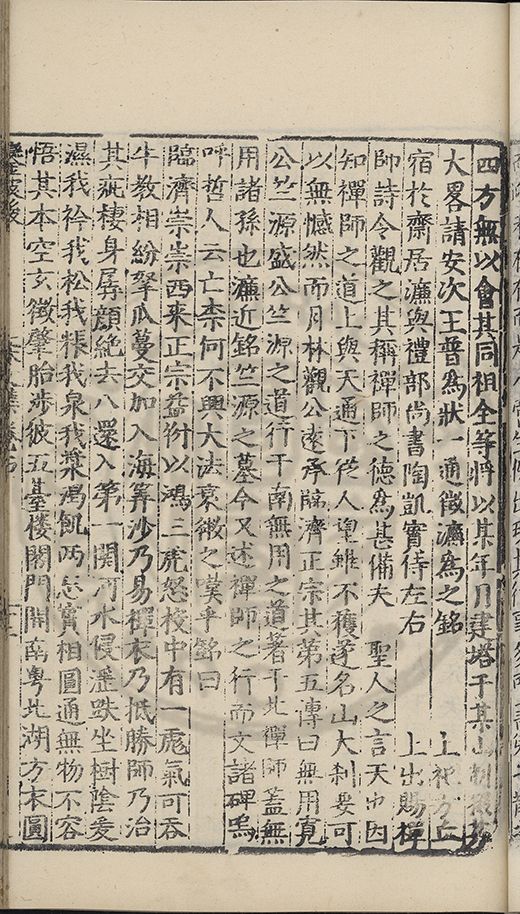 四方無以會其同相全等將以某年月建塔于某山
大畧請安次王普爲狀一通徵濂爲之銘　上祀方丘
宿於齋居濂與禮部尚書陶凱實侍左右　上出賜禪
師詩令觀之其稱禪師之德爲甚備夫　聖人之言天也因
知禪師之道上與天通下從人望雖不獲逆名山大刹要可
以無憾然而月林觀公遠承臨濟正宗其第五傳曰無用寬
公竺源盛公竺源之道行于南無用之道著于北禪師蓋無
用諸孫也濂近銘竺源之墓今又述禪師之行而文諸碑嗚
呼哲人云亡柰何不興大法衰微之嘆乎銘曰
臨濟崇崇西來正宗益衍以鴻三虎怒投中有一彪氣可吞
牛教相紛拏瓜蔓交加入海筭沙乃易禪衣乃抵勝師乃治
其疵棲身孱顔絶去八還入第一關河水侵灉趺坐樹陰爰
濕我衿我松我粻我泉我漿渴飢兩忘實相圓通無物不容
悟其本空玄徵肇胎步彼五臺樓閣門開南粤北湖方衣圓